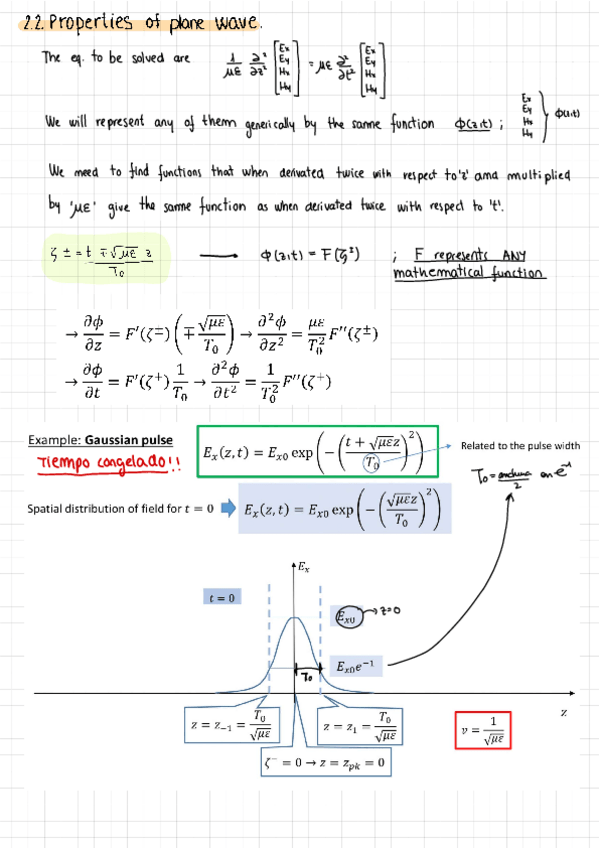 2.2. Properties of plane wave.
The eq. to be solved are 1/με ∂²/∂z² [Ex Ey Hx Hy] = με ∂²/∂t² [Ex Ey Hx Hy]
We will represent any of them generically by the same function Φ(z,t) ; Ex Ey Hx Hy } Φ(z,t)
We need to find functions that when derivated twice with respect to 'z' and multiplied
by 'με' give the same function as when derivated twice with respect to 't'.
ζ± = t ∓ √με z / T₀ → Φ(z,t) = F(ζ±) ; F represents ANY
mathematical function
→ ∂ϕ/∂z = F′(ζ±) (∓ √με/T₀) → ∂²ϕ/∂z² = με/T₀² F″(ζ±)
→ ∂ϕ/∂t = F′(ζ⁺) 1/T₀ → ∂²ϕ/∂t² = 1/T₀² F″(ζ⁺)
Example: Gaussian pulse
Tiempo congelado!!
Eₓ(z,t) = Eₓ₀ exp(−((t + √με z)/T₀)²)
Related to the pulse width
T₀ = anchura/2 en e⁻¹
Spatial distribution of field for t = 0
Eₓ(z,t) = Eₓ₀ exp(−(√με z/T₀)²)
Eₓ
t = 0
Eₓ₀ → z=0
T₀
Eₓ₀e⁻¹
z
z = z₋₁ = T₀/√με
z = z₁ = T₀/√με
v = 1/√με
ζ⁻ = 0 → z = z_pk = 0